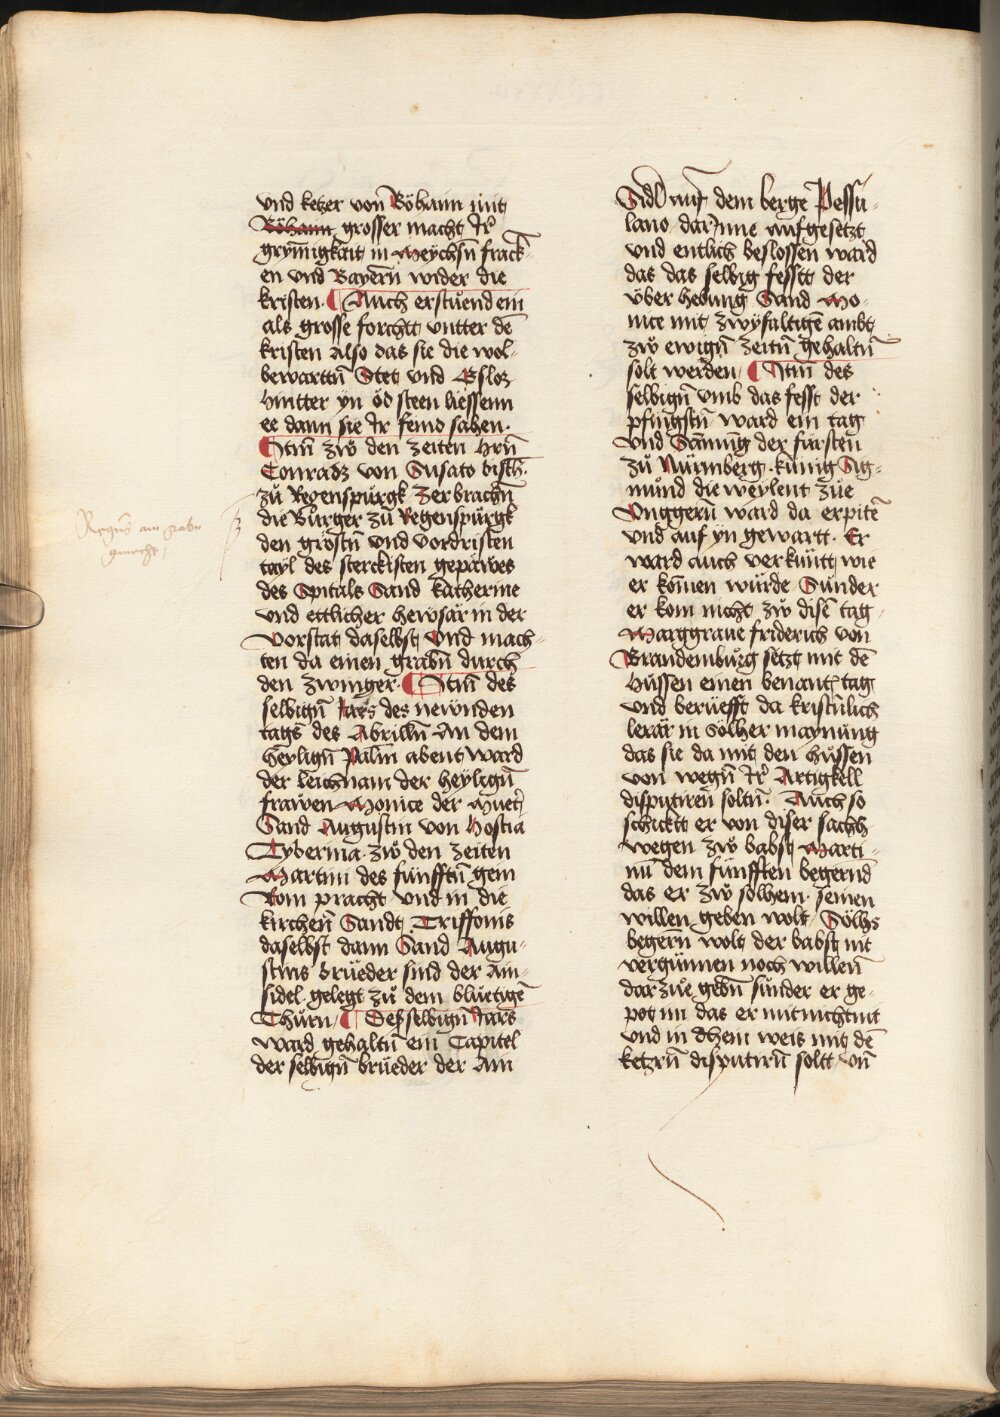 vnd ketzer von Böhaim mit
Böhaim grosser macht Ir̄
grym̄igkait in Meychsn̄ franck
en vnd Bayern̄ wider die
kristen. ¶ Auch erstuend ein
als grosse forchtt vntter dē
kristen also das sie die wol-
bewarttn̄ Stet vnd Gsloz
hintter yn öd steen liessenn
ee dann sie Ir feind sahen.
¶ Itm̄ zẘ den zeiten hrn̄
Conradz von Susato bisch.
zů Regenspürgk zerbrachn̄
die Bürger zů Regenspürgk
den gröstn̄ vnd vordristen
tayl des sterckisten gepawes
des Spitals Sand katherine
vnd ettlicher hewsär in der
vorstat daselbst vnd mach-
ten da einen grabn̄ durch
den zwinger. ¶ Itm̄ des
selbign̄ Jars des newnden
tags des Abrilln̄ An dem
heylign̄ Palm̄ abent ward
der leichnam der heylign̄
frawen Monice der Muet̄
Sand Augustin von Hostia
Tyberina zẘ den zeiten
Martini des fünfftn̄ gem
Rom pracht vnd in die
kirchen̄ Sandt Triffonis
daselbst dann Sand Augu-
stins brüeder sind der Ain-
sidel gelegt zů dem bluetigē
Thürn / ¶ Desselbign̄ Jars
ward gehaltn̄ ein Capitel
der selbign̄ brüeder der Ain
Regn̄s ain grabn
gemacht /
Sidl auf dem berge Pessu-
lano dar Inne aufgesetzt
vnd entlich beslossen ward
das das selbig fesstt der
über hebung Sand Mo-
nice mit zwyfaltigē ambt
zẘ ewign̄ zeitn̄ gehaltn̄
solt werden / ¶ Itm̄ des
selbign̄ vmb das fesst der
pfingstn̄ ward ein tag
vnd Sām̄ng der fürsten
zů Nürmberg. künig Sig-
münd die weylent züe
Vnggern̄ ward da erpitē
vnd auf yn gewartt. Er
ward auch verkünt wie
er kōmen würde Sunder
er kom nicht zẘ disē tag.
Marggraue friderich von
Brandemburg setzt mit dē
Hussen einen benantt tag
vnd berüefft da kristnlich
lerär in sölher maynung
das sie da mit den hussen
von wegn̄ Ir̄ Artigkell
disputiren̄ soltn̄. Auch so
schicktt er von diser sachh
wegen zẘ babst Marti-
nū dem fünfften begernd
das er zẘ solhem seinen
willen geben wolt / Sölhs
begern̄ wolt der babst nit
vergünnen noch willen̄
dar züe gebn̄ sunder er ge-
pot im das er mit nichtnit
vnd in dhem weis mit dē
ketzrn̄ disputirn̄ soltt vn̄